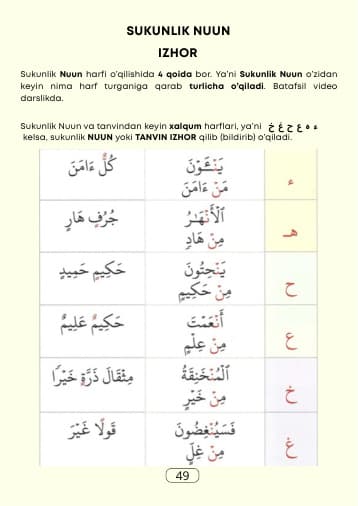 SUKUNLIK NUUN
IZHOR
Sukunlik Nuun harfi o'qilishida 4 qoida bor. Ya'ni Sukunlik Nuun o'zidan
keyin nima harf turganiga qarab turlicha o'qiladi. Batafsil video
darslikda.
Sukunlik Nuun va tanvindan keyin xalqum harflari, ya'ni ء ه ع ح غ خ
kelsa, sukunlik NUUN yoki TANVIN IZHOR qilib (bildirib) o'qiladi.
كُلٌّ ءَامَنَ يَنْـَٔوْنَ ء
مَنْ ءَامَنَ
جُرُفٍ هَارٍ ٱلْأَنْهَٰرُ هـ
مِنْ هَادٍ
حَكِيمٍ حَمِيدٍ يَنْحِتُونَ ح
مِنْ حَكِيمٍ
حَكِيمٌ عَلِيمٌ أَنْعَمْتَ ع
مِنْ عِلْمٍ
مِثْقَالَ ذَرَّةٍ خَيْرًا ٱلْمُنْخَنِقَةُ خ
مِنْ خَيْرٍ
قَوْلًا غَيْرَ فَسَيُنْغِضُونَ غ
مِنْ غِلٍّ
49